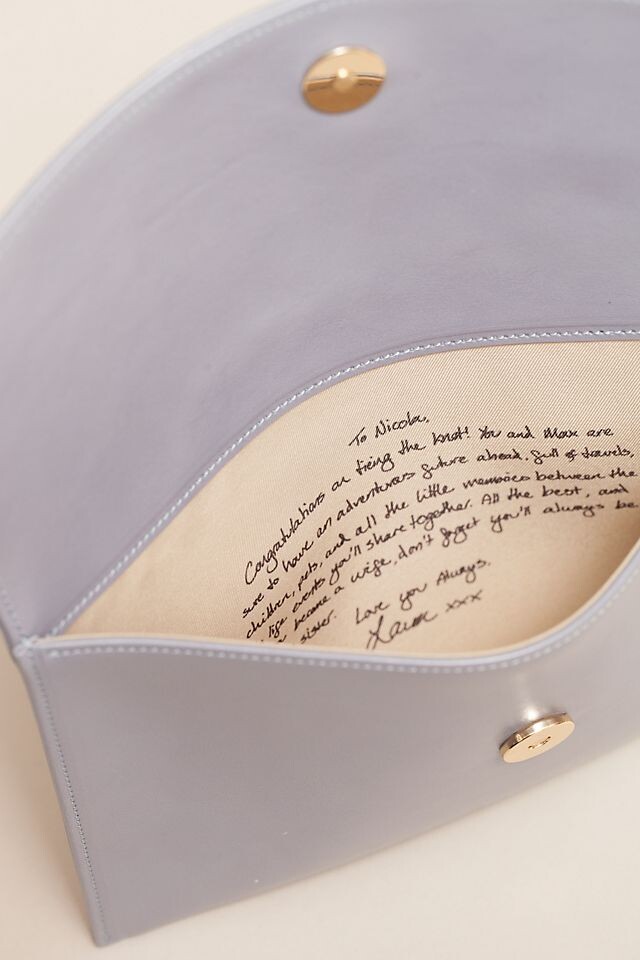 To Nicola,
Congratulations on tieing the knot! You and Max are
sure to have an adventurous future ahead, full of travels,
children, pets, and all the little memories between the
life events you'll share together. All the best, and
become a wife, don't forget you'll always be
sister. Love you Always.
xxx